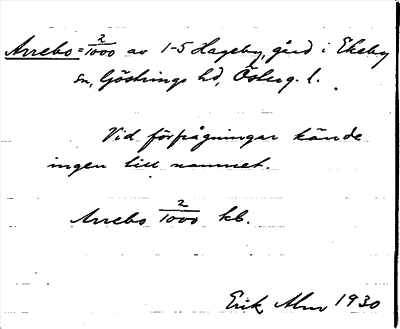 Arrebo = 2/1000 av 1-5 Hageby, gård i Ekeby
sn, Göstrings hd, Österg. l.
Vid förfrågningar kände
ingen till namnet.
Arrebo 2/1000 kb.
Erik Alm 1930